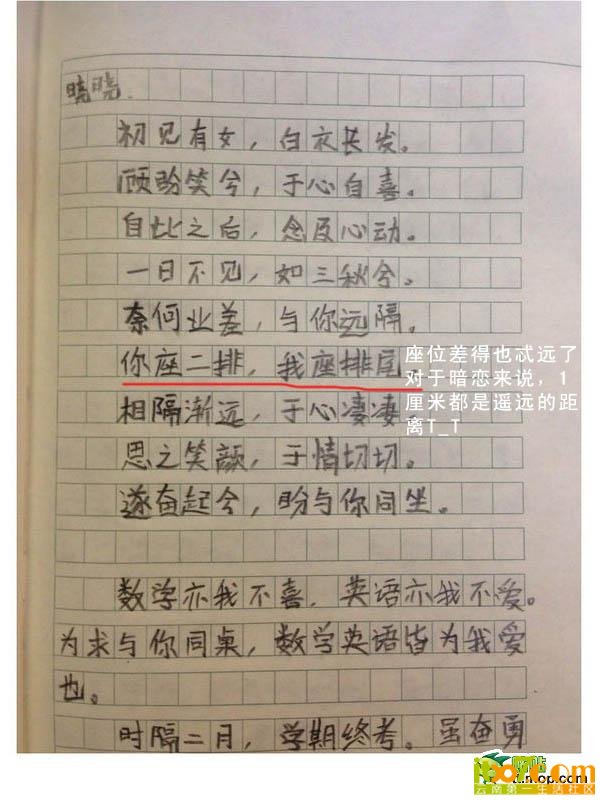 晓晓.
初见有女，白衣长发。
顾盼笑兮，于心自喜。
自此之后，念及心动。
一日不见，如三秋兮。
奈何业差，与你远隔。
你座二排，我座排尾。
座位差得也忒远了
对于暗恋来说，1
厘米都是遥远的距
离T_T
相隔渐远，于心凄凄。
思之笑颜，于情切切。
遂奋起兮，盼与你同坐。
数学亦我不喜，英语亦我不爱。
为求与你同桌，数学英语皆为我爱
也。
时隔二月，学期终考。虽奋勇
云南第一生活社区